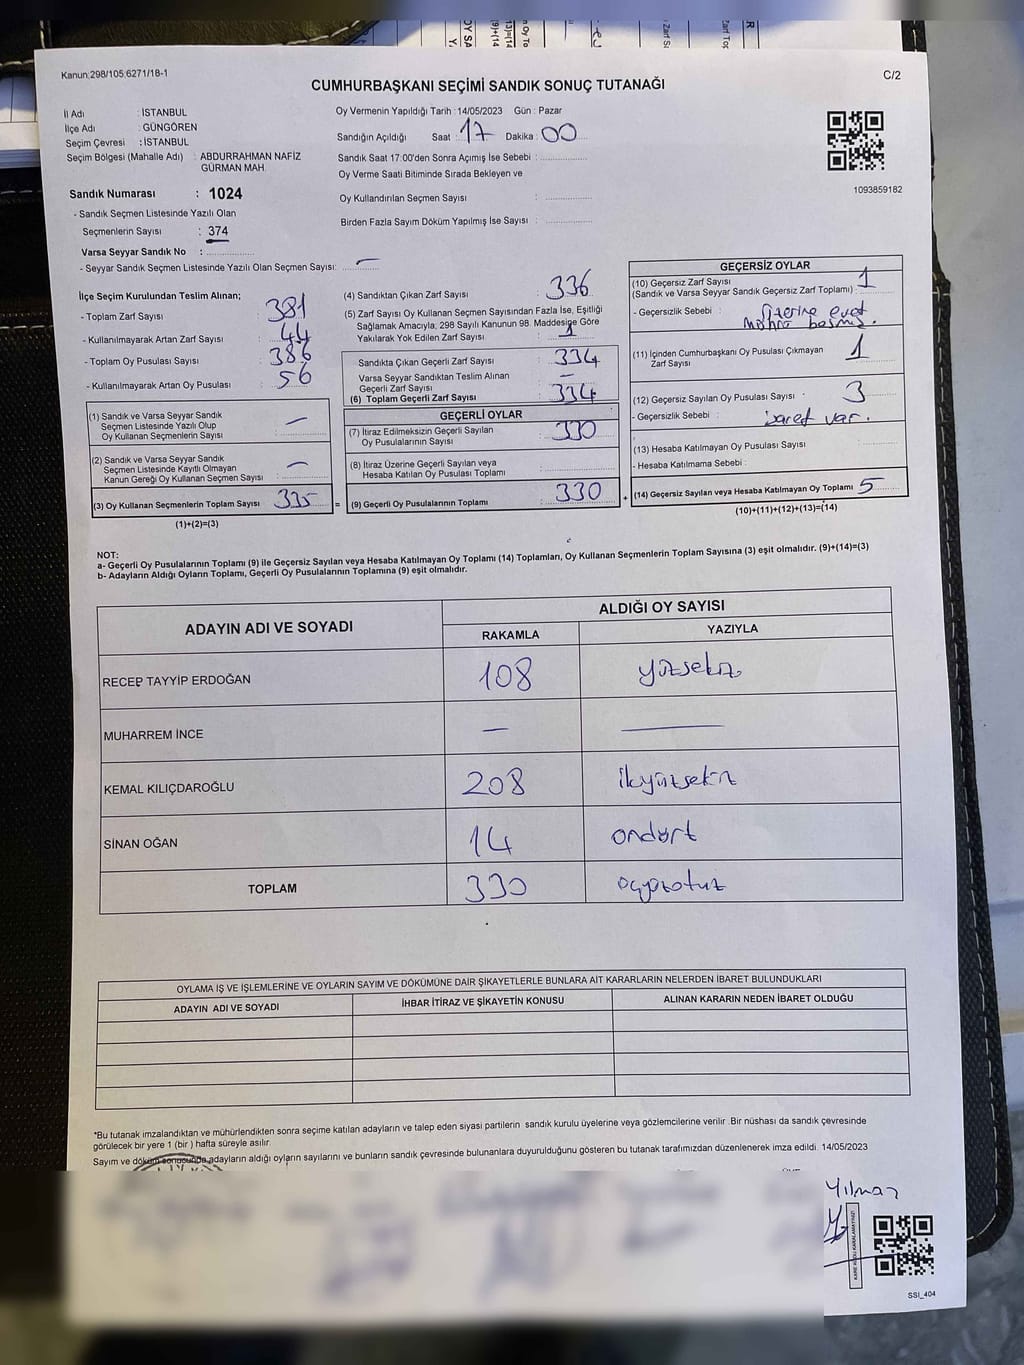 Kanun:298/105;6271/18-1
C/2
CUMHURBAŞKANI SEÇİMİ SANDIK SONUÇ TUTANAĞI
İl Adı : İSTANBUL
İlçe Adı : GÜNGÖREN
Seçim Çevresi : İSTANBUL
Seçim Bölgesi (Mahalle Adı) : ABDURRAHMAN NAFİZ
GÜRMAN MAH.
Sandık Numarası : 1024
- Sandık Seçmen Listesinde Yazılı Olan
Seçmenlerin Sayısı : 374
Varsa Seyyar Sandık No :
- Seyyar Sandık Seçmen Listesinde Yazılı Olan Seçmen Sayısı: —
Oy Vermenin Yapıldığı Tarih : 14/05/2023 Gün : Pazar
Sandığın Açıldığı Saat : 17 Dakika : 00
Sandık Saat 17:00'den Sonra Açımış İse Sebebi :
Oy Verme Saati Bitiminde Sırada Bekleyen ve
Oy Kullandırılan Seçmen Sayısı :
Birden Fazla Sayım Döküm Yapılmış İse Sayısı :
1093859182
İlçe Seçim Kurulundan Teslim Alınan;
- Toplam Zarf Sayısı : 381
- Kullanılmayarak Artan Zarf Sayısı : 44
- Toplam Oy Pusulası Sayısı : 386
- Kullanılmayarak Artan Oy Pusulası : 56
(1) Sandık ve Varsa Seyyar Sandık
Seçmen Listesinde Yazılı Olup
Oy Kullanan Seçmenlerin Sayısı : —
(2) Sandık ve Varsa Seyyar Sandık
Seçmen Listesinde Kayıtlı Olmayan
Kanun Gereği Oy Kullanan Seçmen Sayısı : —
(3) Oy Kullanan Seçmenlerin Toplam Sayısı : 335 =
(1)+(2)=(3)
(4) Sandıktan Çıkan Zarf Sayısı : 336
(5) Zarf Sayısı Oy Kullanan Seçmen Sayısından Fazla İse, Eşitliği
Sağlamak Amacıyla, 298 Sayılı Kanunun 98. Maddesine Göre
Yakılarak Yok Edilen Zarf Sayısı : 1
Sandıkta Çıkan Geçerli Zarf Sayısı : 334
Varsa Seyyar Sandıktan Teslim Alınan
Geçerli Zarf Sayısı : —
(6) Toplam Geçerli Zarf Sayısı : 334
GEÇERLİ OYLAR
(7) İtiraz Edilmeksizin Geçerli Sayılan
Oy Pusulalarının Sayısı : 330
(8) İtiraz Üzerine Geçerli Sayılan veya
Hesaba Katılan Oy Pusulası Toplamı :
(9) Geçerli Oy Pusulalarının Toplamı : 330 +
GEÇERSİZ OYLAR
(10) Geçersiz Zarf Sayısı
(Sandık ve Varsa Seyyar Sandık Geçersiz Zarf Toplamı) : 1
- Geçersizlik Sebebi : Üzerine evet
mührü basmış.
(11) İçinden Cumhurbaşkanı Oy Pusulası Çıkmayan
Zarf Sayısı : 1
(12) Geçersiz Sayılan Oy Pusulası Sayısı : 3
- Geçersizlik Sebebi : işaret var.
(13) Hesaba Katılmayan Oy Pusulası Sayısı :
- Hesaba Katılmama Sebebi :
(14) Geçersiz Sayılan veya Hesaba Katılmayan Oy Toplamı : 5
(10)+(11)+(12)+(13)=(14)
NOT:
a- Geçerli Oy Pusulalarının Toplamı (9) ile Geçersiz Sayılan veya Hesaba Katılmayan Oy Toplamı (14) Toplamları, Oy Kullanan Seçmenlerin Toplam Sayısına (3) eşit olmalıdır. (9)+(14)=(3)
b- Adayların Aldığı Oyların Toplamı, Geçerli Oy Pusulalarının Toplamına (9) eşit olmalıdır.
ADAYIN ADI VE SOYADI
ALDIĞI OY SAYISI
RAKAMLA YAZIYLA
RECEP TAYYİP ERDOĞAN 108 yüzsekiz
MUHARREM İNCE — —
KEMAL KILIÇDAROĞLU 208 ikiyüzsekiz
SİNAN OĞAN 14 ondört
TOPLAM 330 üçyüzotuz
OYLAMA İŞ VE İŞLEMLERİNE VE OYLARIN SAYIM VE DÖKÜMÜNE DAİR ŞİKAYETLERLE BUNLARA AİT KARARLARIN NELERDEN İBARET BULUNDUKLARI
ADAYIN ADI VE SOYADI İHBAR İTİRAZ VE ŞİKAYETİN KONUSU ALINAN KARARIN NEDEN İBARET OLDUĞU
*Bu tutanak imzalandıktan ve mühürlendikten sonra seçime katılan adayların ve talep eden siyasi partilerin sandık kurulu üyelerine veya gözlemcilerine verilir. Bir nüshası da sandık çevresinde
görülecek bir yere 1 (bir ) hafta süreyle asılır.
Sayım ve döküm sonucunda adayların aldığı oyların sayılarını ve bunların sandık çevresinde bulunanlara duyurulduğunu gösteren bu tutanak tarafımızdan düzenlenerek imza edildi. 14/05/2023
Yılmaz
SSI_404